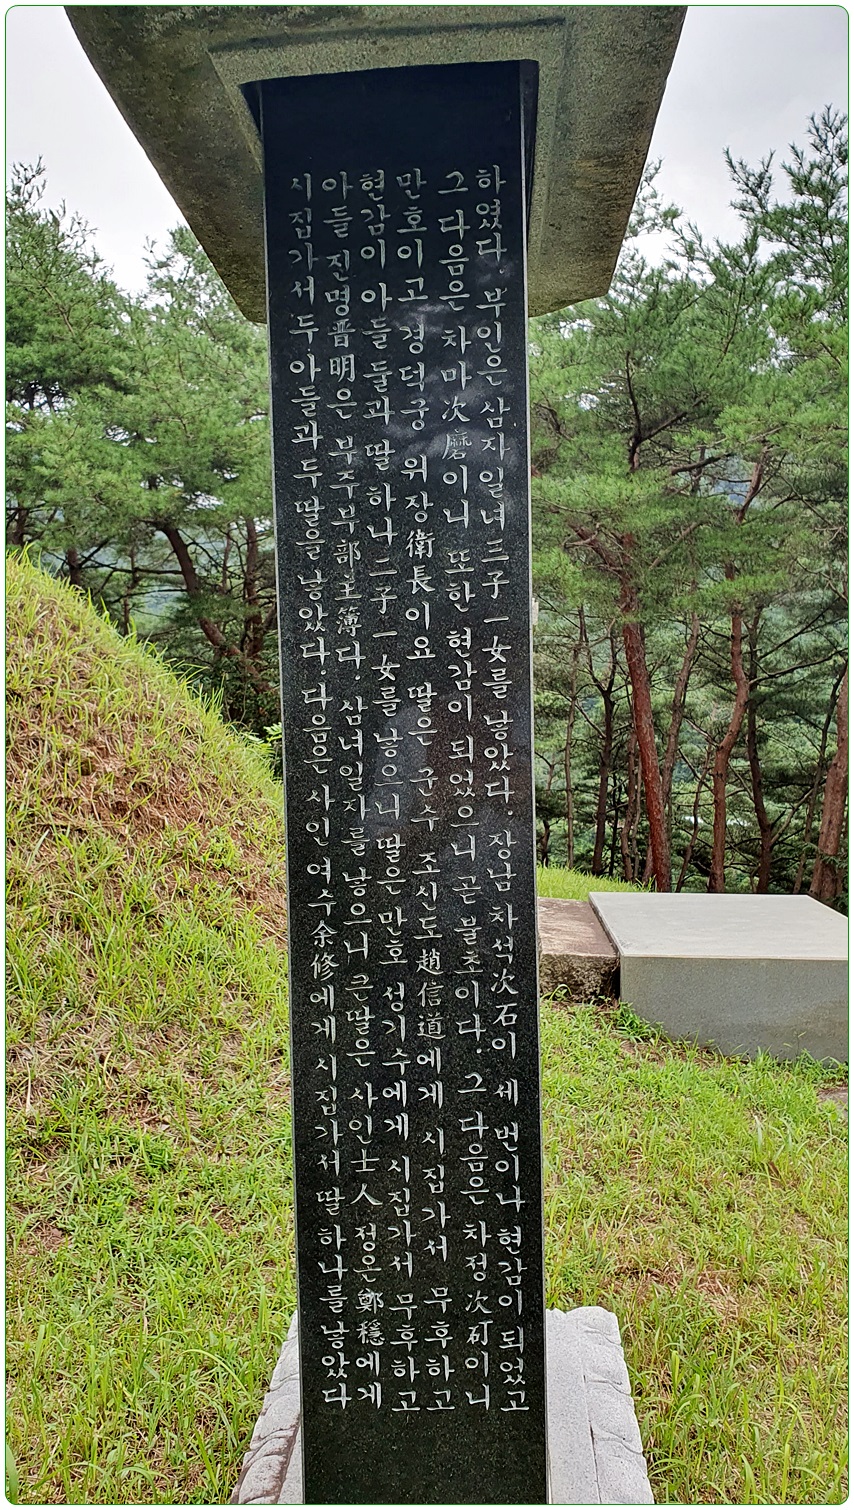 하였다. 부인은 삼자일녀三子一女를 낳았다. 장남 차석次石이 세 번이나 현감이 되었고
그 다음은 차마次磨이니 또한 현감이 되었으니 곧 불초이다. 그 다음은 차정次矴이니
만호이고 경덕궁 위장衛長이요 딸은 군수 조신도趙信道에게 시집가서 무후하고
현감이 아들 둘과 딸 하나 二子一女를 낳으니 딸은 만호 성기수에게 시집가서 무후하고
아들 진명晋明은 부주부部主簿다. 삼녀일자를 낳으니 큰딸은 사인士人 정온鄭穩에게
시집가서 두 아들과 두 딸을 낳았다. 다음은 사인 여수余修에게 시집가서 딸 하나를 낳았다